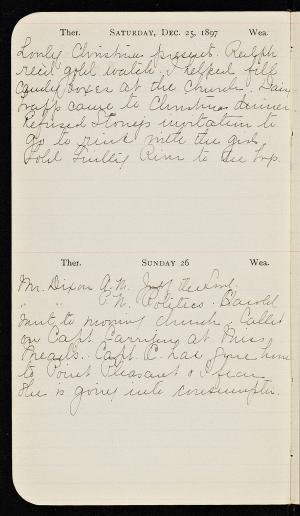 Ther. SATURDAY, DEC. 25, 1897 Wea.
Lovely Christmas present. Ralph
rec'd gold watch. I helped fill
Candy boxes at the Church. Dan
came to Christmas dinner.
Refused Stone's invitation to
go to rink with the girls.
Sold River to the
Ther. SUNDAY 26 Wea.
Mr. Dixon A.M. 
" " P.M. Politics. Harold
went to morning church. Called
on Capt. at Miss
Capt. C. has gone home
to Point Pleasant & I fear
She is going into consumption.